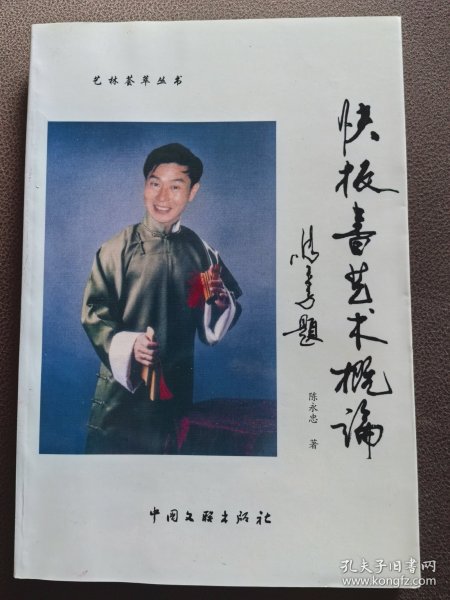 艺林荟萃丛书
快板书艺术概论
题
陈永忠 著
中国文联出版社
孔夫子旧书网
www.kongfz.com